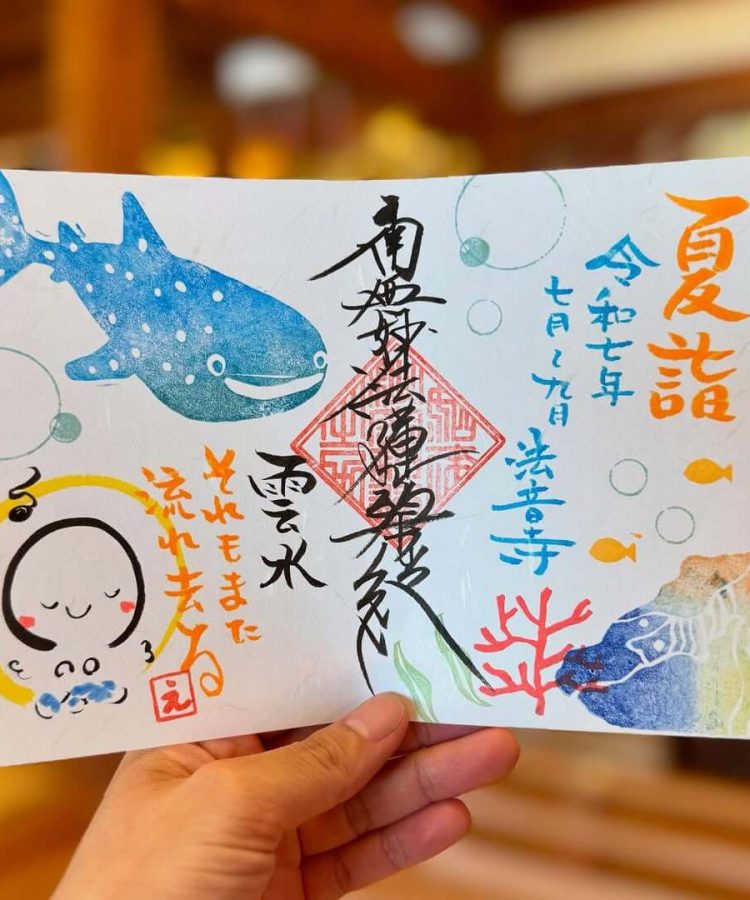 夏詣
令和七年
七月〜九月
法音寺
南無妙法蓮華経
雲水
それもまた
流れ去る
え